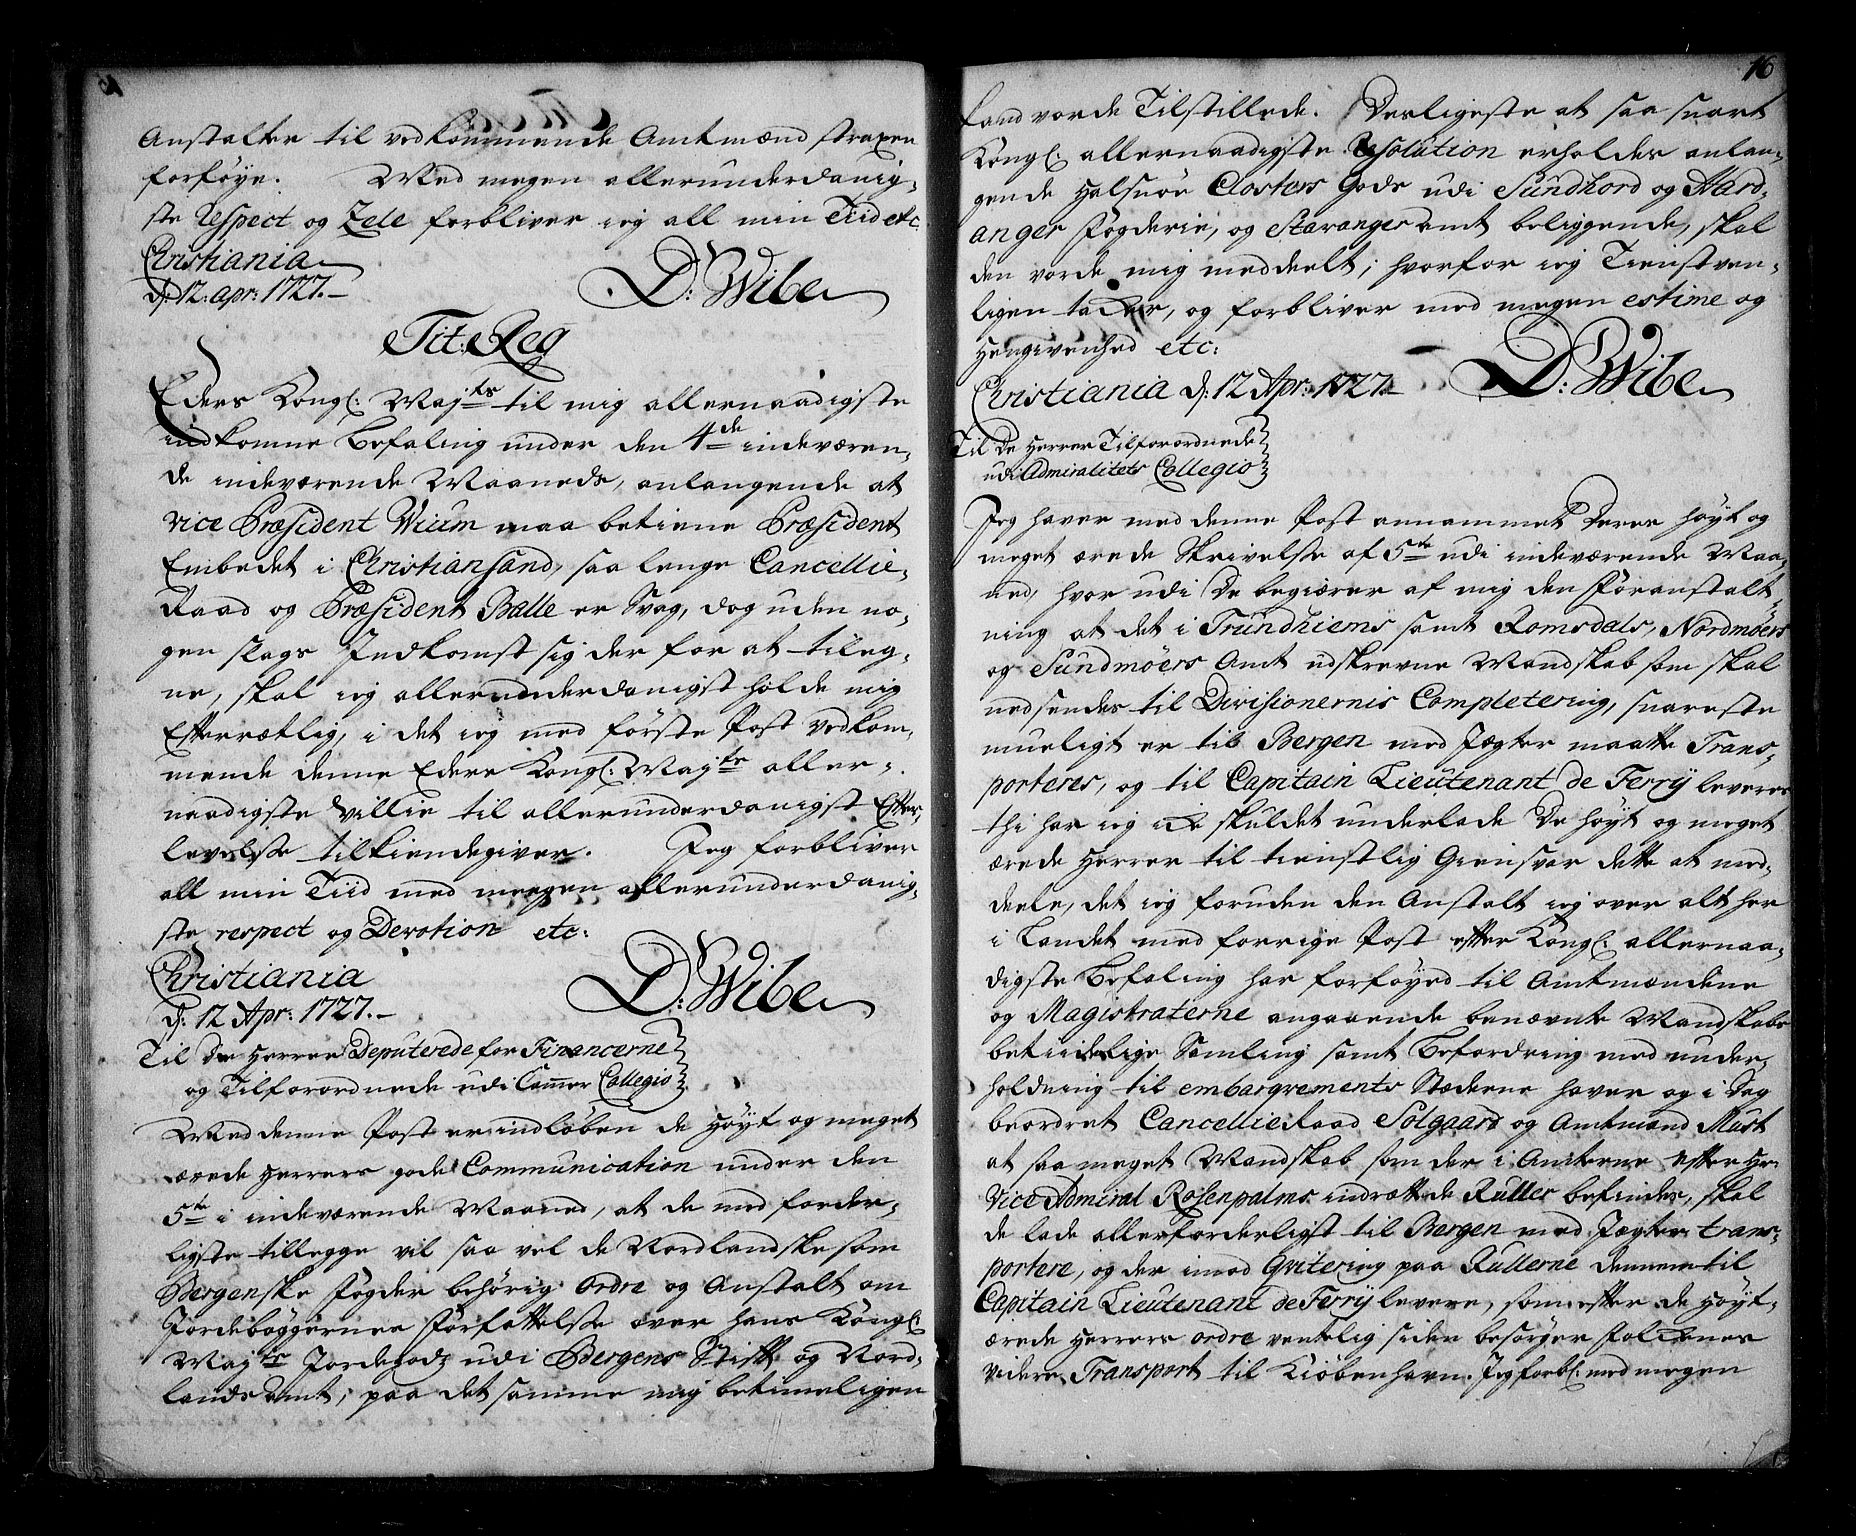 Anstalter til vedkommende Amtmænd straxen
forføye. Med megen allerunderdanig-
ste Respect og Zele forbliver ieg all min Tiid etc.
Christiania
d: 12: apr: 1727.
D: Wibe
Tit: Reg
Eders Kongl: Maj:ts til mig allernaadigste
indkomne Befaling under den 4de indeværen-
de indeværende Maaneds, anlangende at
vice Præsident Wium maa betiene Præsident
Embedet i Christiansand, saa lenge Cancellie-
Raad og Præsident Balle er Svag, dog uden no-
gen slags Indkomst sig der for at tileg-
ne, skal ieg allerunderdanigst holde mig
Efterrætlig, i det ieg med første Post vedkom-
mende denne Eders Kongl: Maj:ts aller-
naadigste Villie til allerunderdanigst Efter-
levelse tilkiendegiver. Jeg forbliver
all min Tiid med megen allerunderdanig-
ste respect og Devotion etc:
Christiania
d: 12 Apr: 1727.-
D: Wibe
Til De Herrer Deputerede for Financerne
og Tilforordnede udi Cammer Collegio
Med denne Post er indløben de høyt og meget
ærede Herrers gode Communication under den
5te i indeværende Maaned, at de med forder-
ligste tillegge vil saa vel de Nordlandske som
Bergenske Fogder behørig Ordre og Anstalt om
Jordebøggernes Forfattelse over hans Kongl:
Maj:ts Jordegods udi Bergens Stift og Nord-
lands Amt, paa det samme mig betimeligen
16
kand vorde Tilstillede. Desligeste at saa snart
Kongl: allernaadigste Resolution erholdes anlan-
gende Halsnøe Closters Gods udi Sundhord og Hard-
anger Fogderie, og Stavanger amt beliggende, skal
den vorde mig meddeelt; hvorfor ieg Tienstven-
ligen takker, og forbliver med megen estime og
Hengivenhed etc:
Christiania d: 12 Apr: 1727.-
D: Wibe
Til De Herrer Tilforordnede
udi Admiralitets Collegio
Jeg haver med denne Post annammet Deres høyt og
meget ærede Skrivelse af 5te udi indeværende Maa-
ned, hvor udi De begiærer af mig den Foranstalt-
ning at det i Trundhiems samt Romsdals, Nordmøers
og Sundmøers Amt udskrevne Mandskab som skal
nedsendes til Divisionernis Completering, snareste
mueligt er til Bergen med Jægter maatte Trans-
porteres, og til Capitain Lieutenant de Ferrÿ leveres
thi har ieg icke skuldet underlade De høyt og meget
ærede Herrer til tienstlig Giensvar dette at med-
deele, det ieg foruden den Anstalt ieg over alt her
i Landet med forrige Post efter Kongl: allernaa-
digste Befaling har forføyed til Amtmændene
og Magistraterne angaaende benævnte Mandskabs
betiidelige Samling samt Befordring med under-
holdning til embargrements Stæderne haver og i Dag
beordret Cancellie Raad Solgaard og Amtmand Must
at saa meget Mandskab som der i Amterne efter Hr:
Vice Admiral Rosenpalms indrættede Ruller befindes, skal
de lade allerforderligst til Bergen med Jægter trans-
portere, og der imod Qvitering paa Rullerne dennem til
Capitain Lieutenant de Ferrÿ levere, som efter de Høyt-
ærede Herrers ordre ventelig siden besørger Folckenes
videre Transport til Kiøbenhavn. Jeg forbl: med megen